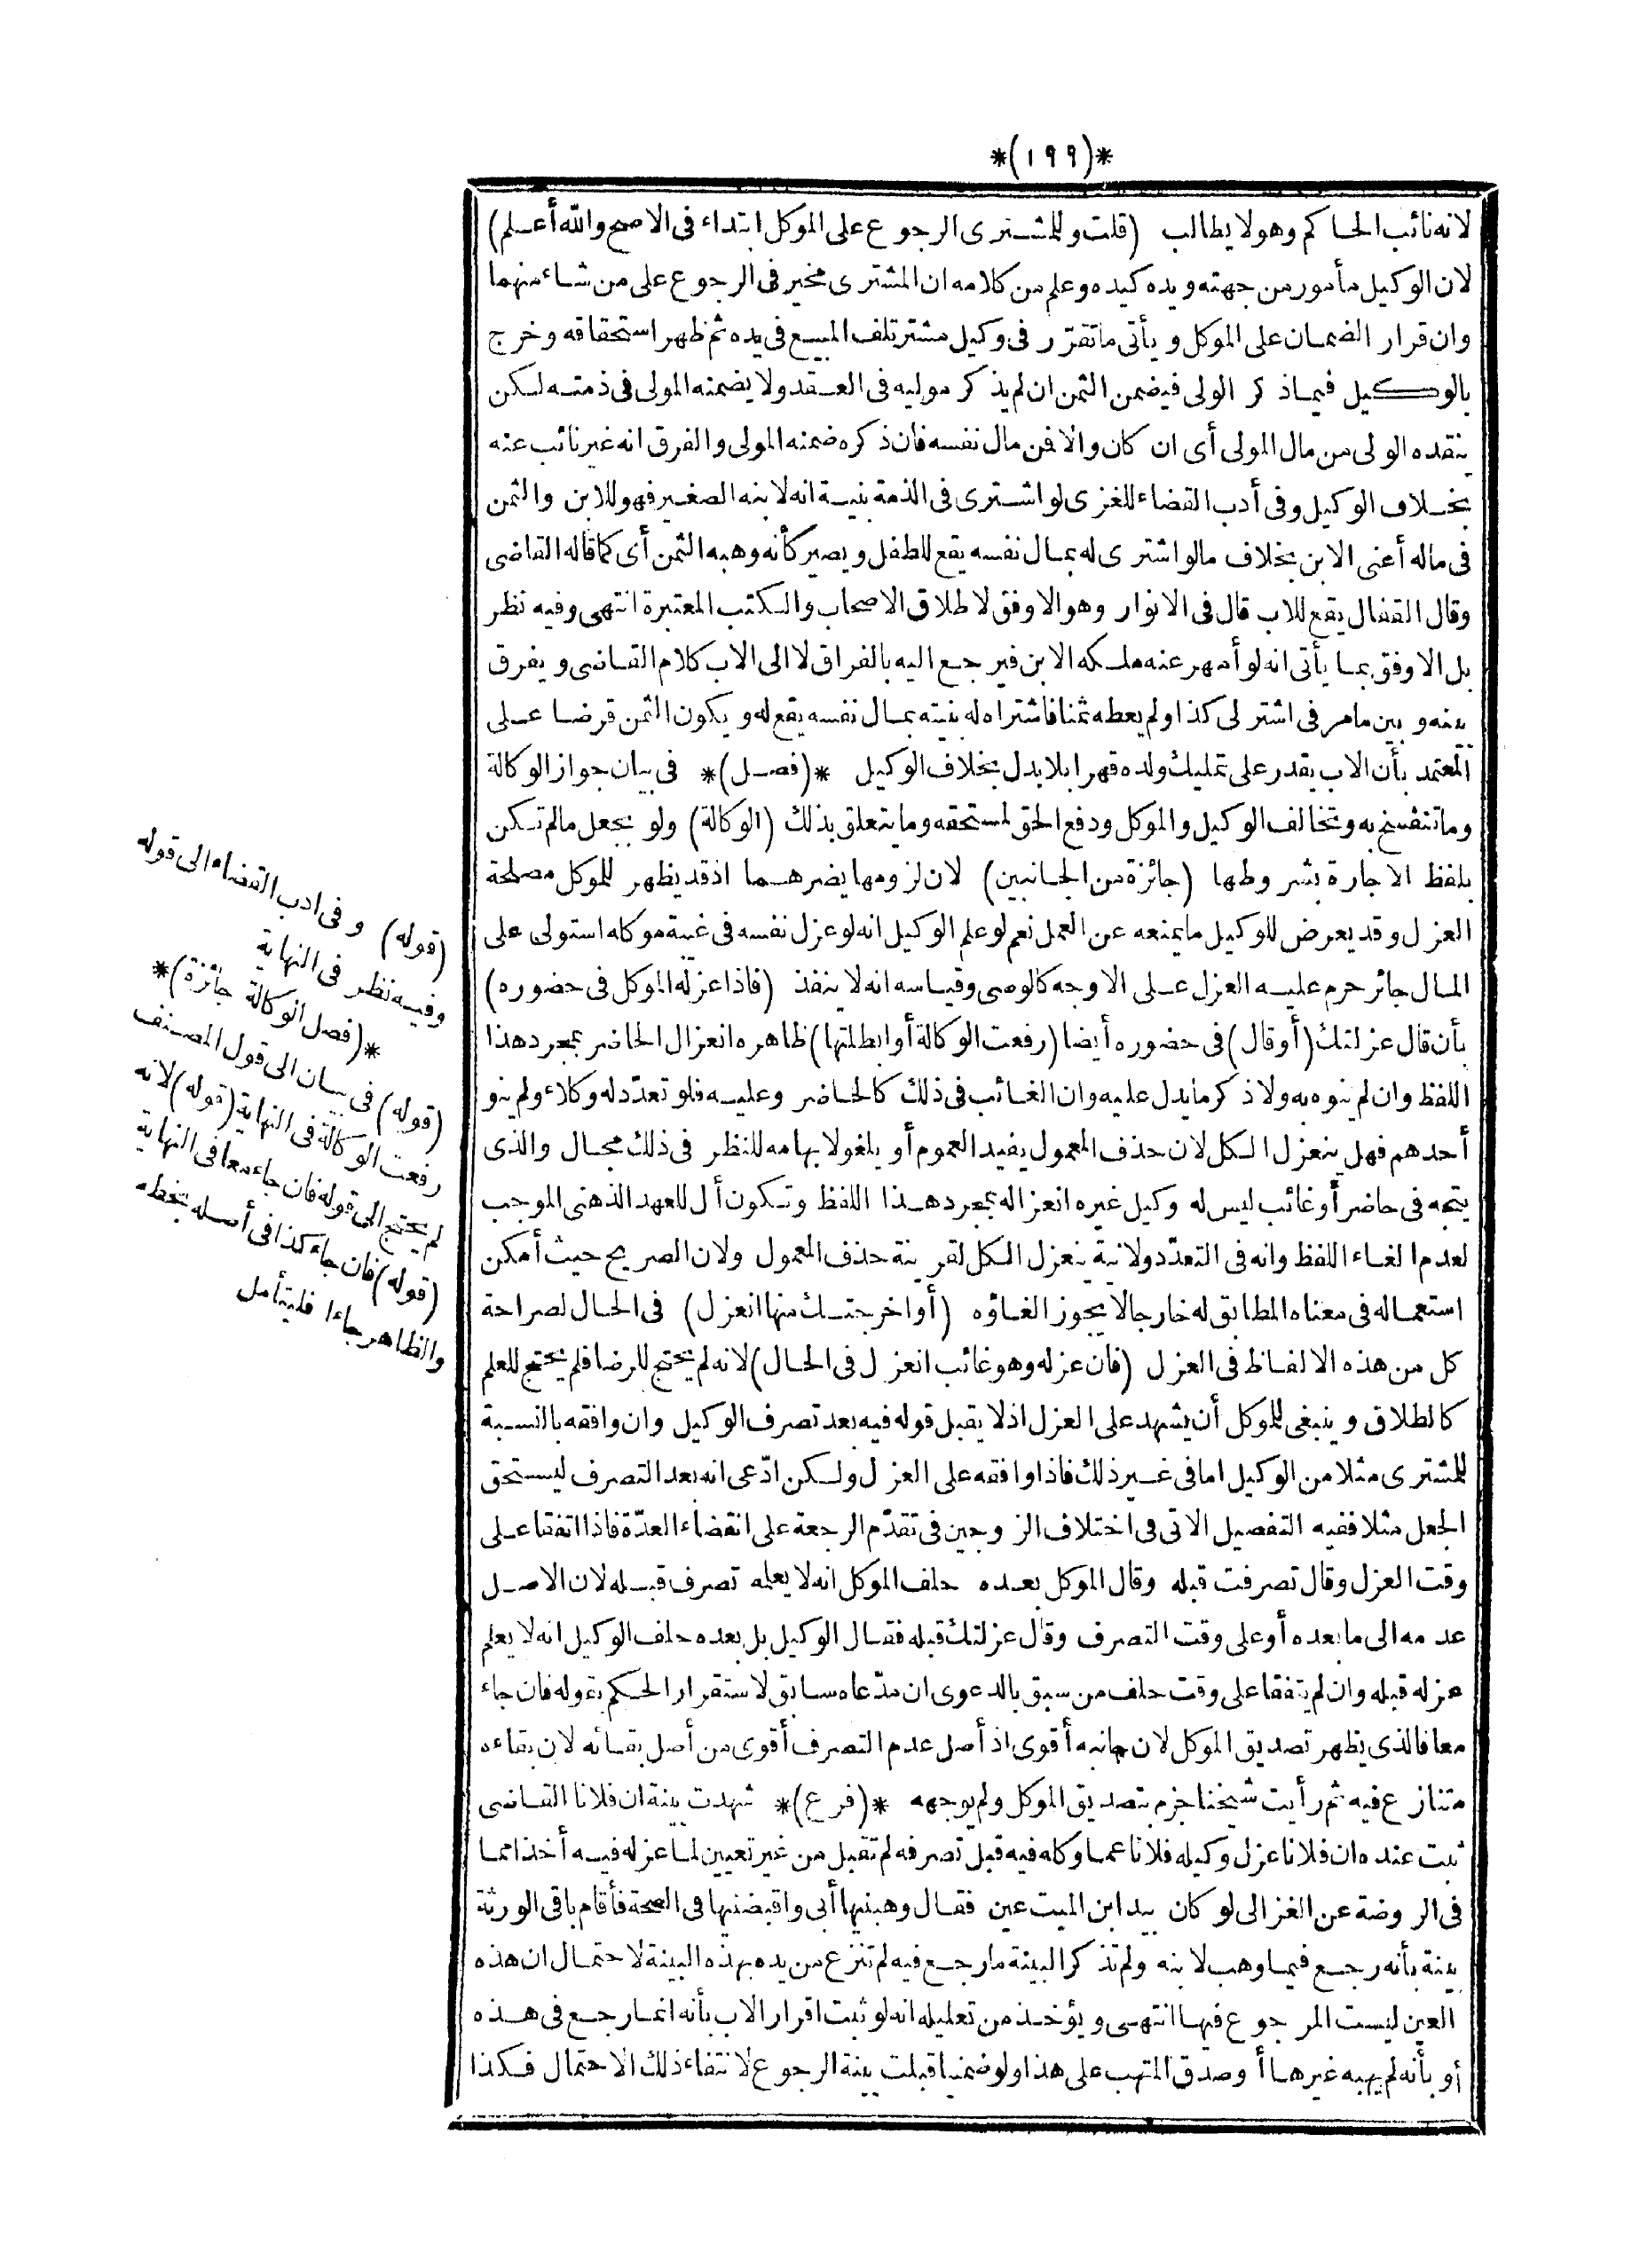 *(١٩٩)*
لانه نائب الحاكم وهو لا يطالب (قلت وللمشترى الرجوع على الموكل ابتداء فى الاصح والله أعلم)
لان الوكيل مأمور من جهته ويده كيده وعلم من كلامه ان المشترى مخير فى الرجوع على من شاء منهما
وان قرار الضمان على الموكل ويأتى ما تقرّر فى وكيل مشتر تلف المبيع فى يده ثم ظهر استحقاقه وخرج
بالوكيل فيما ذكر الولى فيضمن الثمن ان لم يذكر موليه فى العقد ولا يضمنه المولى فى ذمته لكن
ينقده الولى من مال المولى أى ان كان والا فن مال نفسه فان ذكره ضمنه المولى والفرق انه غير نائب عنه
بخلاف الوكيل وفى أدب القضاء للغزى لو اشترى فى الذمة بنية انه لابنه الصغير فهو للابن والثمن
فى ماله أعنى الابن بخلاف ما لو اشترى له بمال نفسه يقع للطفل ويصير كأنه وهبه الثمن أى كما قاله القاضى
وقال القفال يقع للاب قال فى الانوار وهو الاوفق لاطلاق الاصحاب والكتب المعتبرة انتهى وفيه نظر
بل الاوفق بما يأتى انه لو أمهر عنه ملكه الابن فيرجع اليه بالفراق لا الى الاب كلام القاضى ويفرق
بينه وبين ما مر فى اشتر لى كذا ولم يعطه ثمنا فاشتراه له بنيته بمال نفسه يقع له ويكون الثمن قرضا على
المعتمد بأن الاب يقدر على تمليك ولده قهرا بلا بدل بخلاف الوكيل *(فصل)* فى بيان جواز الوكالة
وما تنفسخ به وتخالف الوكيل والموكل ودفع الحق لمستحقه وما يتعلق بذلك (الوكالة) ولو بجعل ما لم تكن
بلفظ الاجارة بشروطها (جائزة من الجانبين) لان لزومها يضرهما اذ قد يظهر للموكل مصلحة
العزل وقد يعرض للوكيل ما يمنعه عن العمل نعم لو علم الوكيل انه لو عزل نفسه فى غيبة موكله استولى على
المال جائر حرم عليه العزل على الاوجه كالوصى وقياسه انه لا ينفذ (فاذا عزله الموكل فى حضوره)
بأن قال عزلتك (أو قال) فى حضوره أيضا (رفعت الوكالة أو ابطلتها) ظاهره انعزال الحاضر بمجرد هذا
اللفظ وان لم ينوه به ولا ذكر ما يدل عليه وان الغائب فى ذلك كالحاضر وعليه فلو تعدّد له وكلاء ولم ينو
أحدهم فهل ينعزل الكل لان حذف المعمول يفيد العموم أو يلغو لابهامه للنظر فى ذلك مجال والذى
يتجه فى حاضر أو غائب ليس له وكيل غيره انعزاله بمجرد هذا اللفظ وتكون أل للعهد الذهنى الموجب
لعدم الغاء اللفظ وانه فى التعدّد ولا نية ينعزل الكل لقرينة حذف المعمول ولان الصريح حيث أمكن
استعماله فى معناه المطابق له خارجا لا يجوز الغاؤه (أو اخرجتك منها انعزل) فى الحال لصراحة
كل من هذه الالفاظ فى العزل (فان عزله وهو غائب انعزل فى الحال) لانه لم يحتج للرضا فلم يحتج للعلم
كالطلاق وينبغى للموكل أن يشهد على العزل اذ لا يقبل قوله فيه بعد تصرف الوكيل وان وافقه بالنسبة
للمشترى مثلا من الوكيل اما فى غير ذلك فاذا وافقه على العزل ولكن ادّعى انه بعد التصرف ليستحق
الجعل مثلا ففيه التفصيل الاتى فى اختلاف الزوجين فى تقدّم الرجعة على انقضاء العدّة فاذا اتفقا على
وقت العزل وقال تصرفت قبله وقال الموكل بعده حلف الموكل انه لا يعلمه تصرف قبله لان الاصل
عدمه الى ما بعده أو على وقت التصرف وقال عزلتك قبله فقال الوكيل بل بعده حلف الوكيل انه لا يعلم
عزله قبله وان لم يتفقا على وقت حلف من سبق بالدعوى ان مدّعاه سابق لاستقرار الحكم بقوله فان جاء
معا فالذى يظهر تصديق الموكل لان جانبه أقوى اذ أصل عدم التصرف أقوى من أصل بقائه لان بقاءه
متنازع فيه ثم رأيت شيخنا جزم بتصديق الموكل ولم يوجهه *(فرع)* شهدت بينة ان فلانا القاضى
ثبت عنده ان فلانا عزل وكيله فلانا عما وكله فيه قبل تصرفه لم تقبل من غير تعيين لما عزله فيه أخذا مما
فى الروضة عن الغزالى لو كان بيد ابن الميت عين فقال وهبنيها أبى واقبضنيها فى الصحة فأقام باقى الورثة
بينة بأنه رجع فيما وهب لابنه ولم تذكر البينة ما رجع فيه لم تنزع من يده بهذه البينة لاحتمال ان هذه
العين ليست المرجوع فيها انتهى ويؤخذ من تعليله انه لو ثبت اقرار الاب بأنه انما رجع فى هذه
أو بأنه لم يهبه غيرها أو صدق المتهب على هذا ولو ضمنيا قبلت بينة الرجوع لانتفاء ذلك الاحتمال فكذا
(قوله) وفى ادب القضاء الى قوله
وفيه نظر فى النهاية
*(فصل الوكالة جائزة)*
(قوله) فى بيان الى قول المصنف
رفعت الوكالة فى النهاية (قوله) لانه
لم يحتج الى قوله فان جاء معا فى النهاية
(قوله) فان جاء كذا فى أصله بخطه
والظاهر جاءا فليتأمل